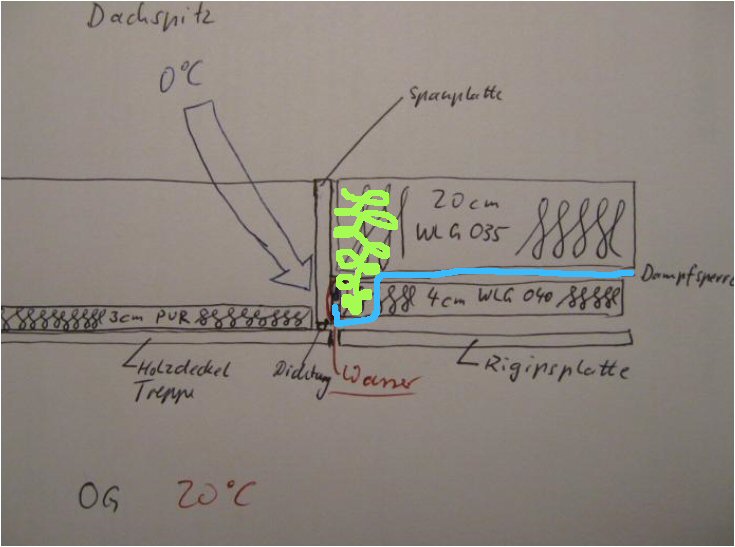 Dachspitz
0°C
Spanplatte
20cm
WLG 035
Dampfsperre
4cm WLG 040
3cm PUR
Holzdeckel
Treppe
Dichtung
Wasser
Rigipsplatte
OG 20°C